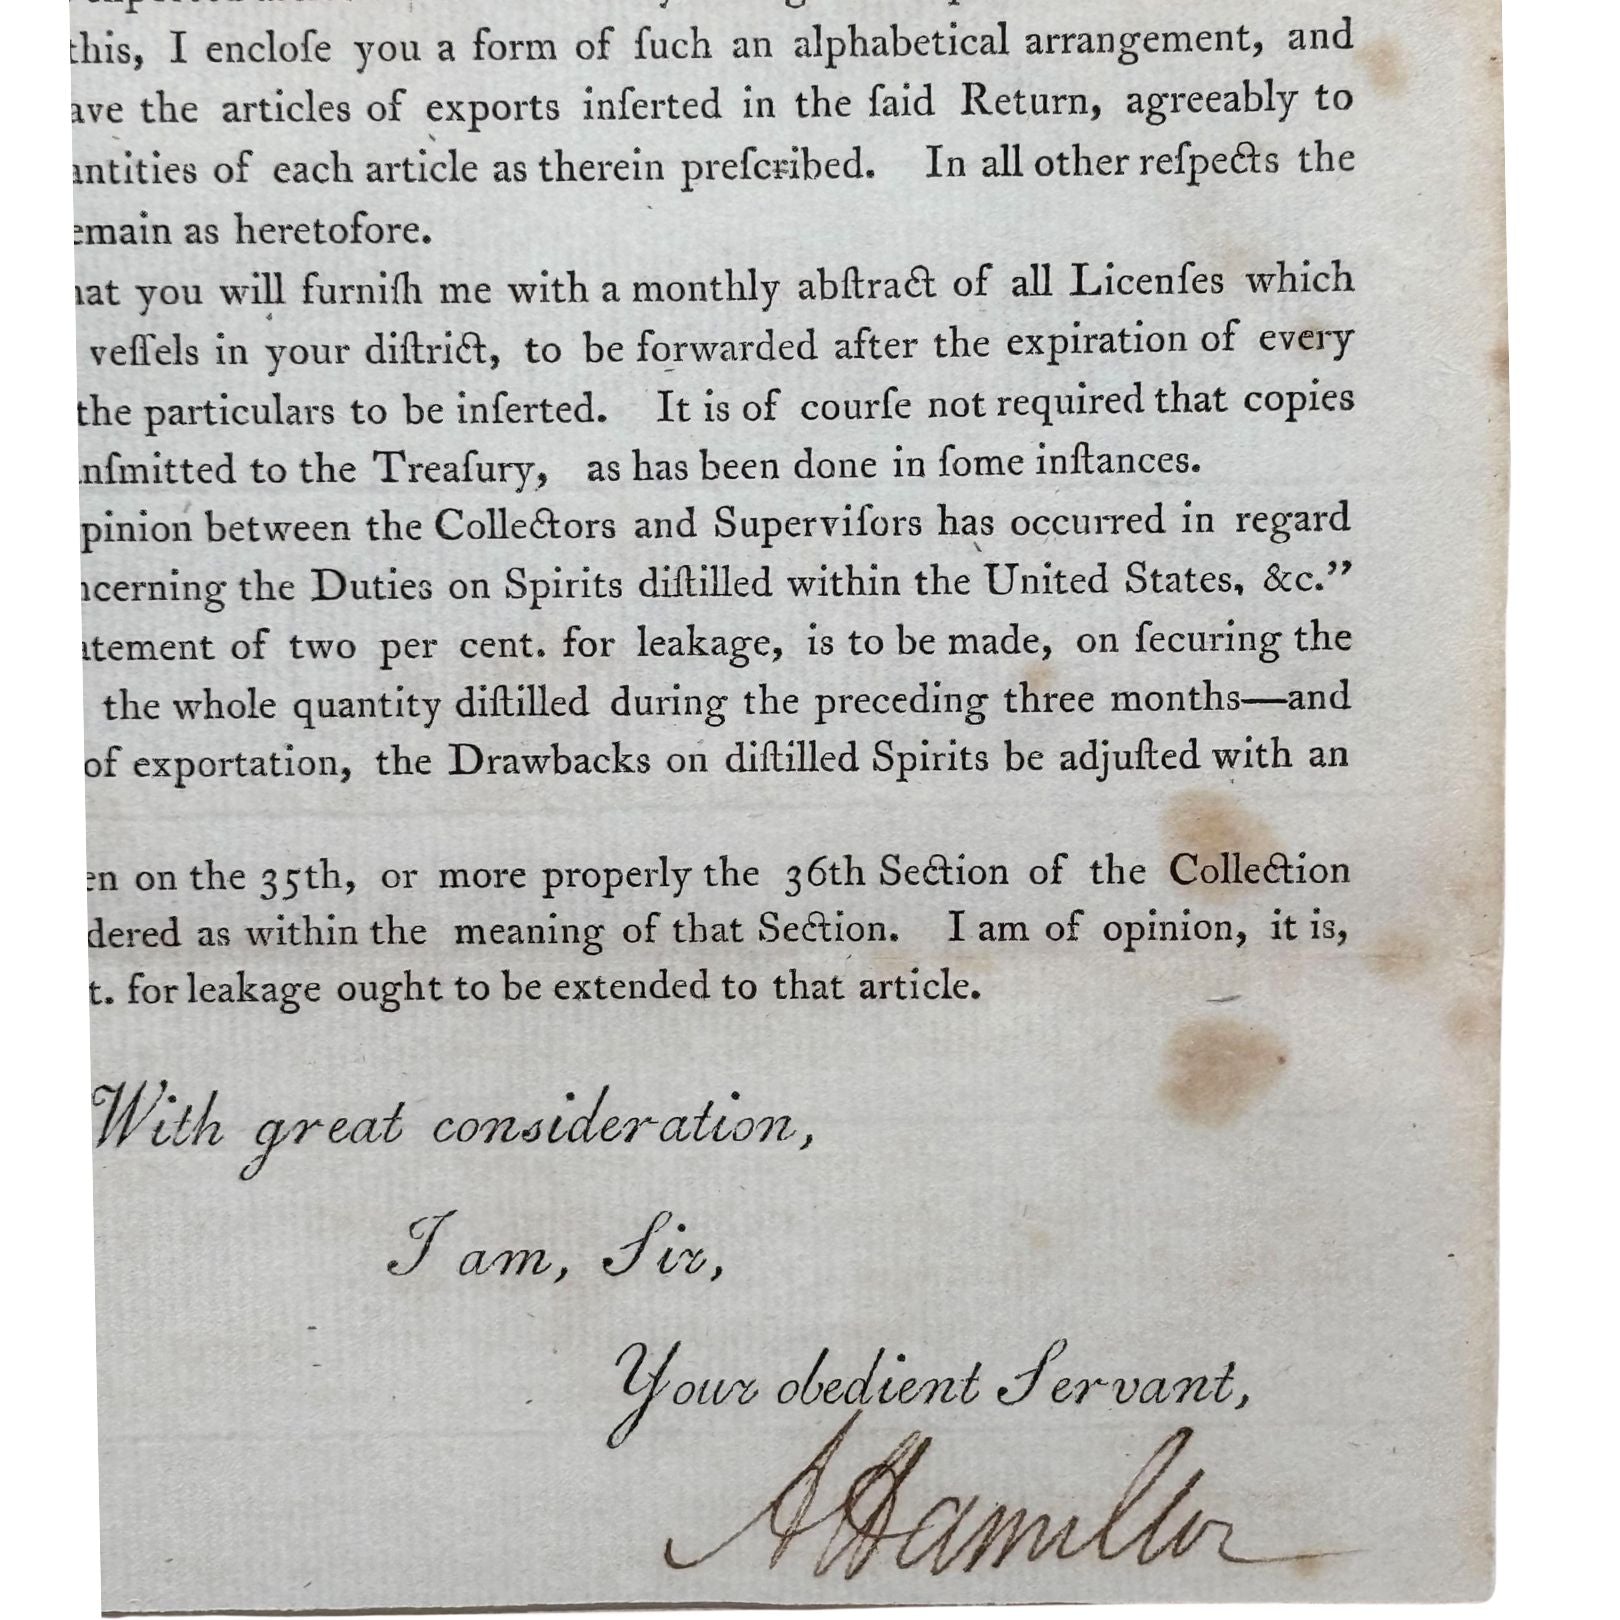 this, I encloſe you a form of ſuch an alphabetical arrangement, and
ave the articles of exports inſerted in the ſaid Return, agreeably to
antities of each article as therein preſcribed. In all other reſpects the
emain as heretofore.
hat you will furniſh me with a monthly abſtract of all Licenſes which
veſſels in your diſtrict, to be forwarded after the expiration of every
the particulars to be inſerted. It is of courſe not required that copies
nſmitted to the Treaſury, as has been done in ſome inſtances.
pinion between the Collectors and Superviſors has occurred in regard
ncerning the Duties on Spirits diſtilled within the United States, &c.”
atement of two per cent. for leakage, is to be made, on ſecuring the
the whole quantity diſtilled during the preceding three months—and
of exportation, the Drawbacks on diſtilled Spirits be adjuſted with an
en on the 35th, or more properly the 36th Section of the Collection
dered as within the meaning of that Section. I am of opinion, it is,
t. for leakage ought to be extended to that article.
With great consideration,
I am, Sir,
Your obedient Servant,
A Hamilton